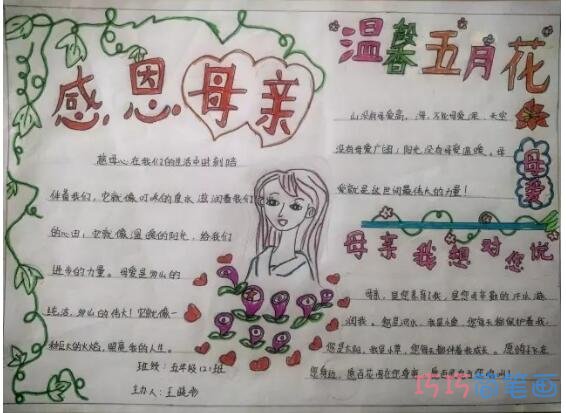 感恩母亲
慈母心在我们的生活中时刻陪
伴着我们,它就像叮咚的泉水滋润着我们
的心田;它就像温暖的阳光,给我们
进步的力量。母爱是那么的
纯洁,那么的伟大!它就像一
和巨大的火焰,照亮我的人生。
班级:五年级(2)班
主办人:王
温馨五月花
山没有母爱高,海,不比母爱深,天空
没有母爱广阔,阳光没有母爱温暖。母
爱就是这世间最伟大的力量!
母爱
母亲我想对您说
母亲,是您养育了我,是您用辛勤的汗水滋
润我。您是河水,我是小鱼,您每天都保护着我,
您是太阳,我是小草,您每天都伴着我成长。愿
您身边,愿百花开在您身旁
巧巧简笔画